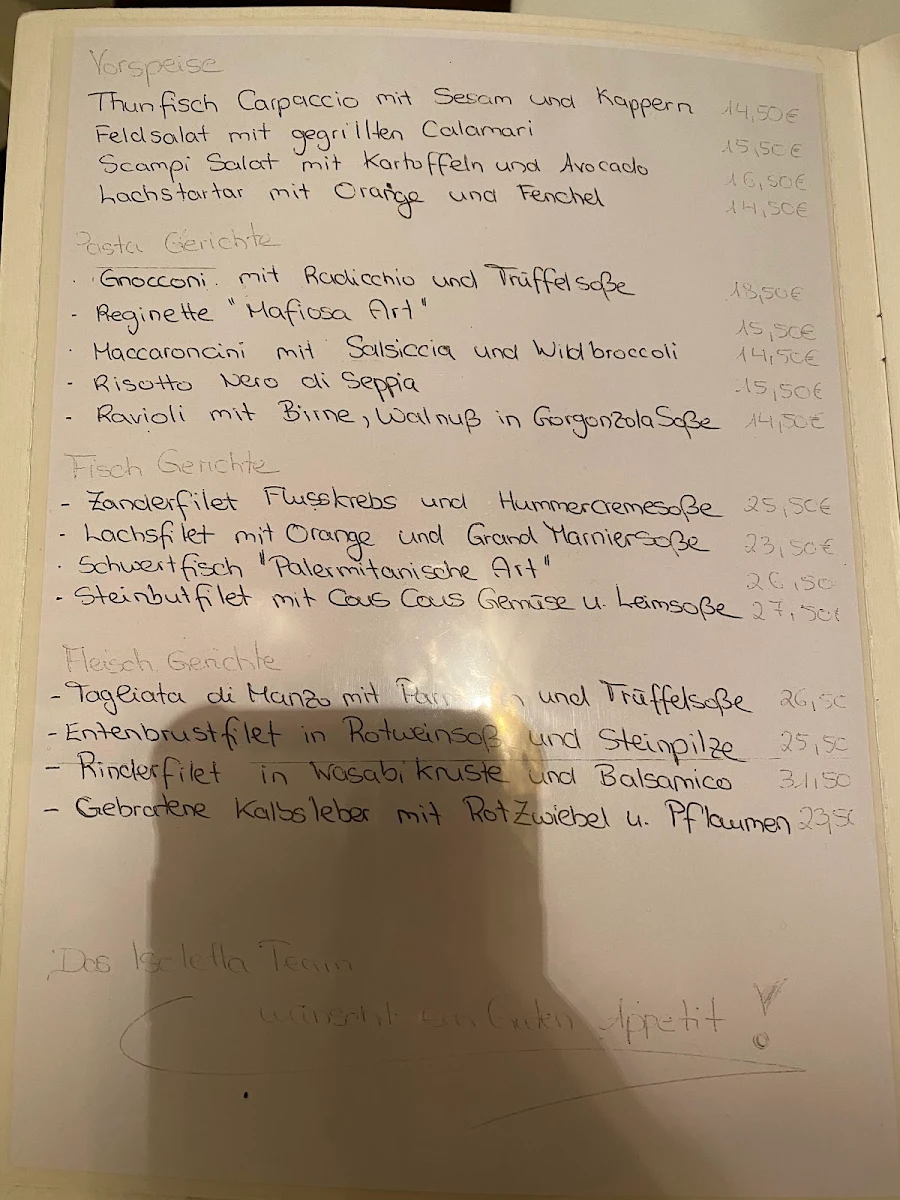 Vorspeise
Thunfisch Carpaccio mit Sesam und Kappern 14,50€
Feldsalat mit gegrillten Calamari 15,50€
Scampi Salat mit Kartoffeln und Avocado 16,50€
Lachstartar mit Orange und Fenchel 14,50€
Pasta Gerichte
· Gnocconi mit Radicchio und Trüffelsoße 18,50€
- Reginette "Mafiosa Art" 15,50€
· Maccaroncini mit Salsiccia und Wildbroccoli 14,50€
- Risotto Nero di Seppia 15,50€
- Ravioli mit Birne, Walnuß in Gorgonzola Soße 14,50€
Fisch Gerichte
- Zanderfilet Flusskrebs und Hummercremesoße 25,50€
- Lachsfilet mit Orange und Grand Marniersoße 23,50€
· Schwertfisch "Palermitanische Art" 26,50
- Steinbutfilet mit Cous Cous Gemüse u. Leimsoße 27,50€
Fleisch Gerichte
- Tagliata di Manzo mit und Trüffelsoße 26,50
- Entenbrustfilet in Rotweinsoß und Steinpilze 25,50
- Rinderfilet in Wasabikruste und Balsamico 31,50
- Gebratene Kalbsleber mit Rot Zwiebel u. Pflaumen 23,50
Das Team
wünscht ein Guten Appetit!